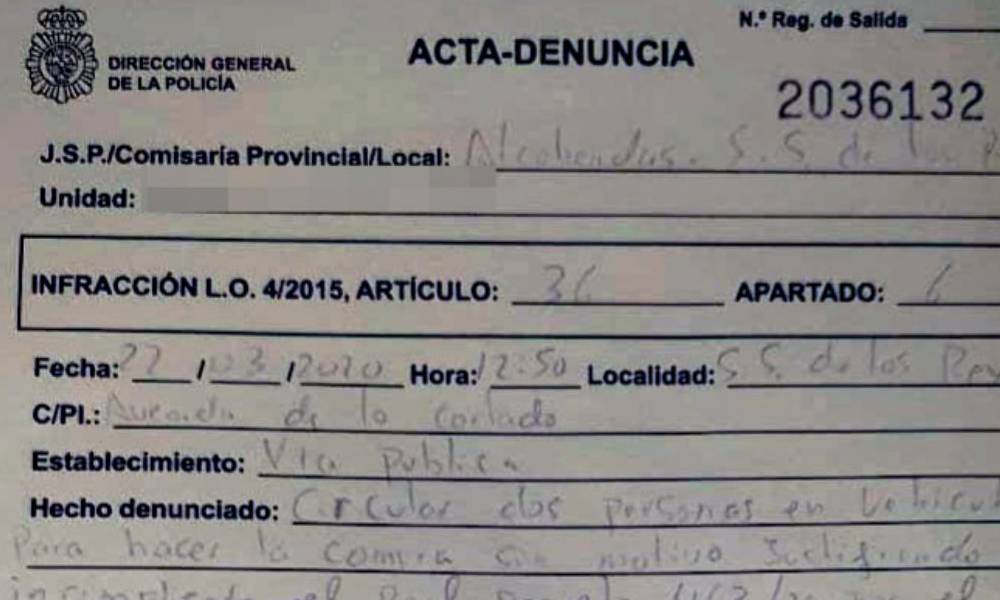 N.º Reg. de Salida
DIRECCIÓN GENERAL
DE LA POLICÍA
ACTA-DENUNCIA
2036132
J.S.P./Comisaría Provincial/Local: Alcobendas. S.S. de los
Unidad:
INFRACCIÓN L.O. 4/2015, ARTÍCULO: 36 APARTADO: 6
Fecha: 22/03/2020 Hora: 12:50 Localidad: S.S. de los Rey
C/Pl.: Avenida de la
Establecimiento: Via publica
Hecho denunciado: Circular dos personas en Vehicul
Para hacer la compra sin motivo Justificado
el